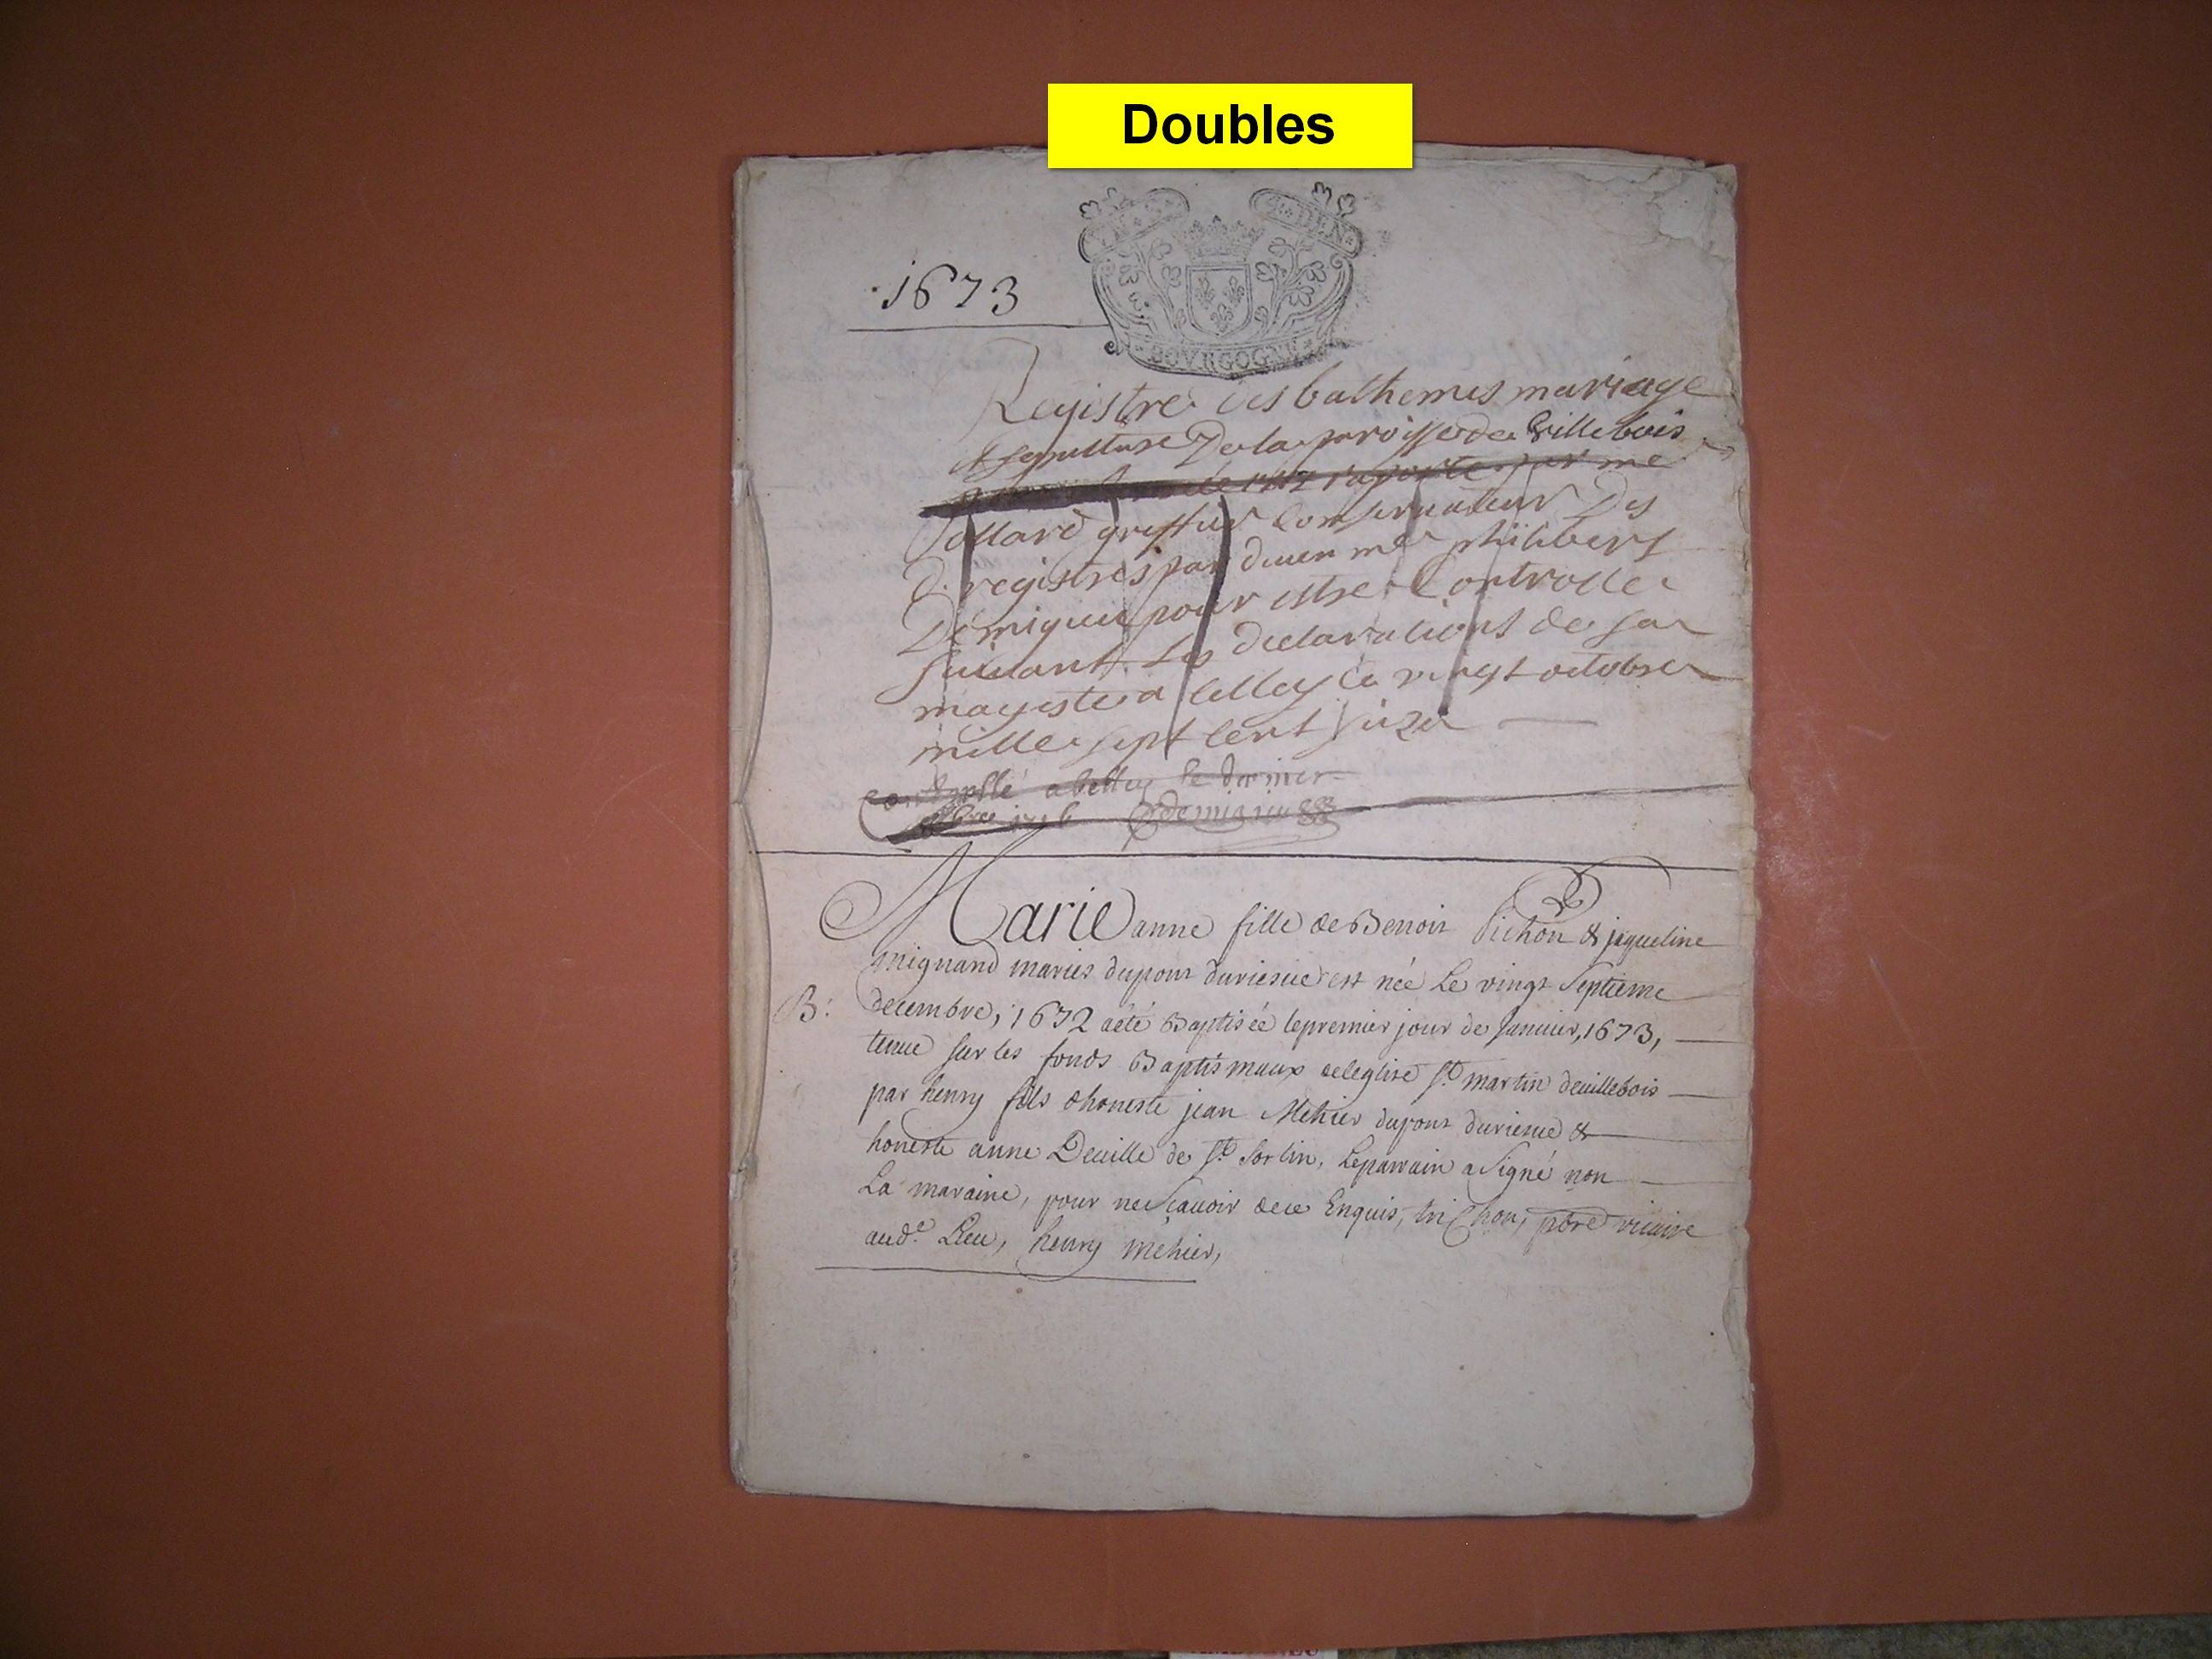 Doubles
DEN
BOVRGOGNE
1673
Registre des bathemes mariage
et sepulture De la paroisse de Villebois
raporte par me
Jollard greffier Conservateur Des
registres par deven me philibert
Demigieu pour estre Controlle
suivant Les declarations de sa
majeste a belley ce vingt octobre
mille sept cent seize
Controllé a belley le dernier
Demigieu
Marie anne fille de Benoit Pichon & jaqueline
mignand mariés dupont durieme est née Le vingt Septieme
B: decembre, 1672 aété Baptisée lepremier jour de Janvier, 1673,
tenue sur les fonds Baptismaux deleglise St martin deuillebois
par henry fils dhoneste jean Mehier dupont durieme &
honeste anne Deuille de St Sorlin, Leparrain a Signé non
La maraine, pour ne Scauoir dece Enquis, trichon, pbre vicaire
aud. Lieu, henry mehier,